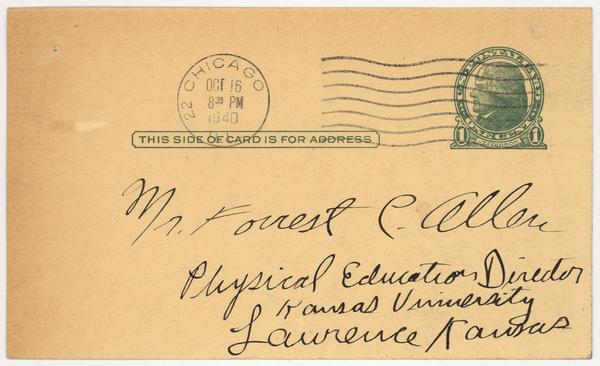 CHICAGO
22
OCT 16
8 30 PM
1940
ILL.
U.S. POSTAL CARD
1 ONE CENT 1
JEFFERSON
THIS SIDE OF CARD IS FOR ADDRESS
Mr. Forrest C. Allen
Physical Education Director
Kansas University
Lawrence Kansas